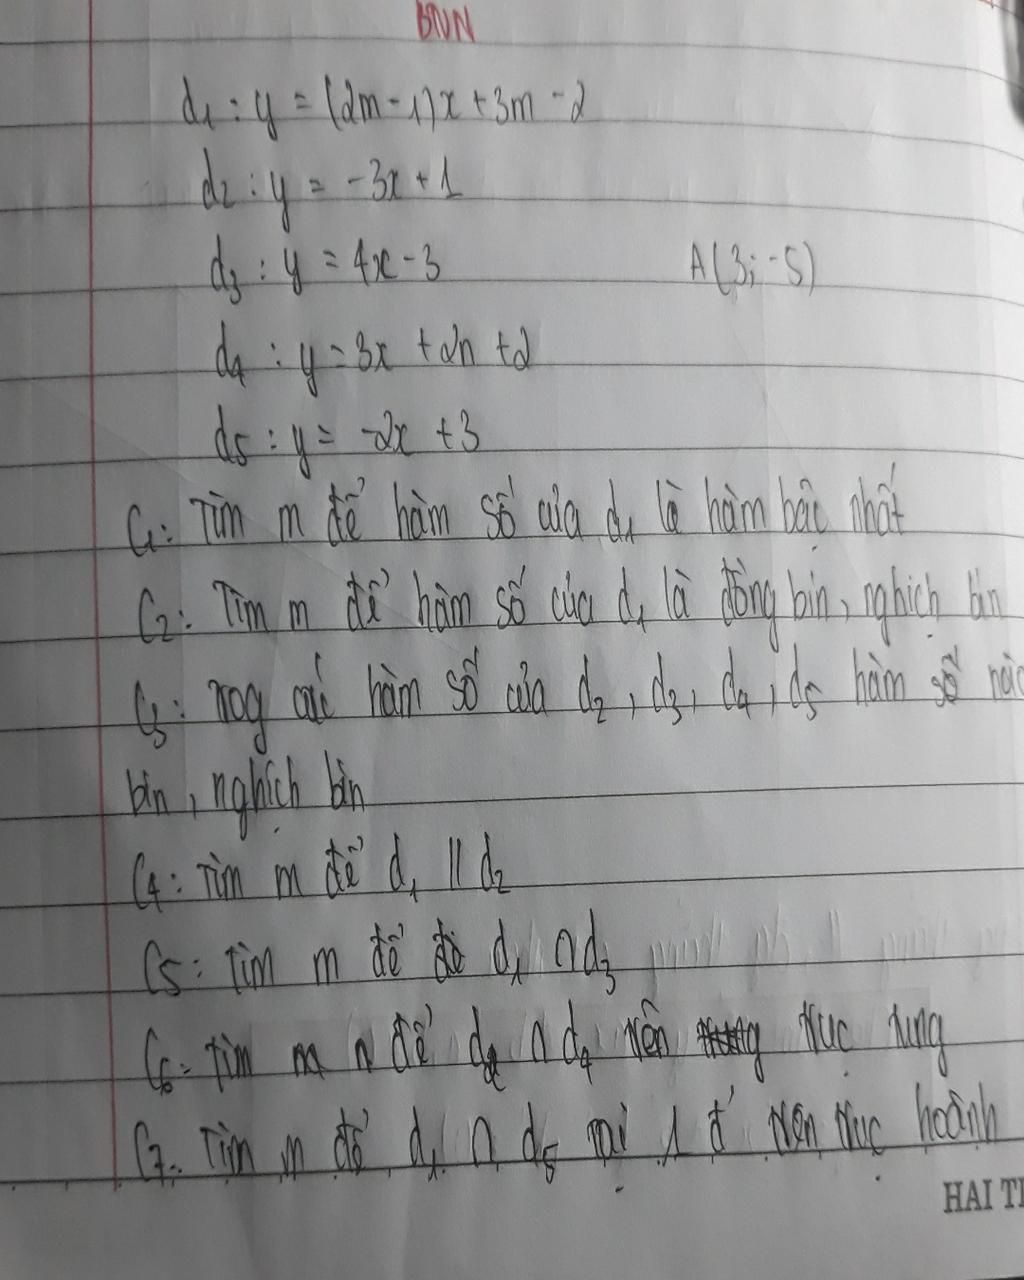 BNN
d₁ : y = (2m - 1)x + 3m - 2
d₂ : y = -3x + 1
d₃ : y = 4x - 3 A(3; -5)
d₄ : y = 3x + 2n + 2
d₅ : y = -2x + 3
C₁: Tìm m để hàm số của d₁ là hàm bậc nhất
C₂: Tìm m để hàm số của d₁ là đồng bin, nghịch bin
C₃: Trog các hàm số của d₂, d₃, d₄, d₅ hàm số nào
bin, nghịch bin
C₄: Tìm m để d₁ // d₂
C₅: Tìm m để d₁ ∩ d₃
C₆: Tìm m n để ∩ d₄ trên trục tung
C₇: Tìm m để d₁ ∩ d₅ tại 1 đ' trên trục hoành
HAI TI